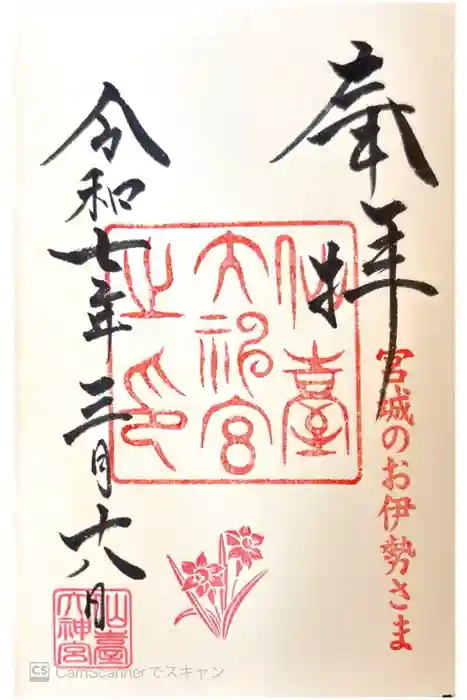 奉拝
宮城のお伊勢さま
仙臺
大神宮
之印
令和七年三月十八日
仙臺
大神宮
CS CamScannerでスキャン